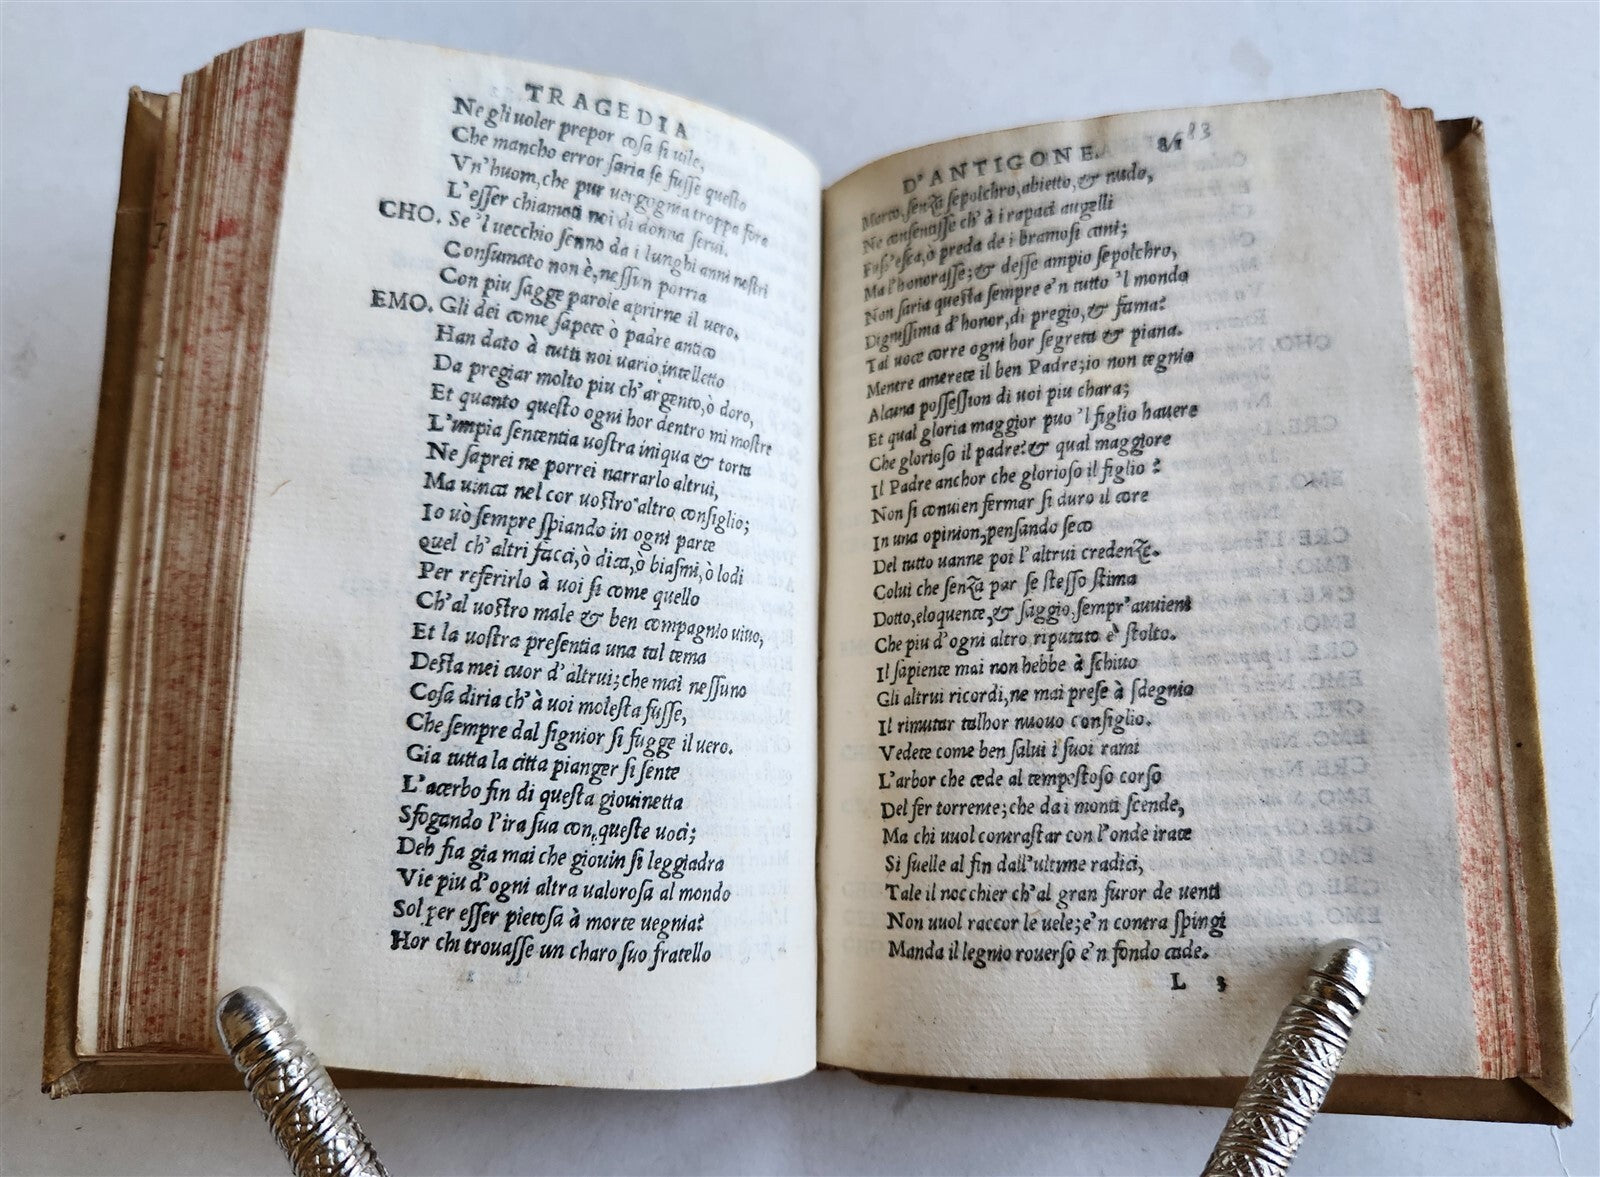 TRAGEDIA
Ne gli uoler prepor cosa si uile,
Che mancho error saria se fusse questo
Vn'huom, che pur uergognia troppa fora
L'esser chiamati noi di donna serui.
CHO. Se 'l uecchio senno da i lunghi anni nostri
Consumato non è, nessun porria
Con piu sagge parole aprirne il uero.
EMO. Gli dei come sapete ò padre antico
Han dato à tutti noi uario, intelletto
Da pregiar molto piu ch'argento, ò doro,
Et quanto questo ogni hor dentro mi mostre
L'impia sententia uostra iniqua & torta
Ne saprei ne porrei narrarlo altrui,
Ma uinca nel cor uostro altro consiglio;
Io uò sempre spiando in ogni parte
quel ch'altri facci, ò dica, ò biasmi, ò lodi
Per referirlo à uoi si come quello
Ch'al uostro male & ben compagnio uiuo,
Et la uostra presentia una tal tema
Desta mei cuor d'altrui; che mai nessuno
Cosa diria ch'à uoi molesta fusse,
Che sempre dal signior si fugge il uero.
Gia tutta la citta pianger si sente
L'acerbo fin di questa giouinetta
Sfogando l'ira sua con, queste uoci;
Deh fia gia mai che giouin si leggiadra
Vie piu d'ogni altra ualorosa al mondo
Sol per esser pietosa à morte uegnia?
Hor chi trouasse un charo suo fratello
D'ANTIGONE. 81 83
Morto, senza sepolchro, abietto, & nudo,
Ne consentisse ch'à i rapaci augelli
Fuss'esca, ò preda de i bramosi cani;
Ma l'honorasse; & desse ampio sepolchro,
Non saria questa sempre e'n tutto 'l mondo
Dignissima d'honor, di pregio, & fama?
Tal uoce corre ogni hor segreta & piana.
Mentre amerete il ben Padre; io non tegnio
Alcuna possession di uoi piu chara;
Et qual gloria maggior puo 'l figlio hauere
Che glorioso il padre? & qual maggiore
Il Padre anchor che glorioso il figlio?
Non si conuien fermar si duro il core
In una opinion, pensando seco
Del tutto uanne poi l'altrui credenze.
Colui che senza par se stesso stima
Dotto, eloquente, & saggio, sempr'auuient
Che piu d'ogni altro riputato è stolto.
Il sapiente mai non hebbe à schiuo
Gli altrui ricordi, ne mai prese à sdegnio
Il rimutar talhor nuouo consiglio.
Vedete come ben salui i suoi rami
L'arbor che cede al tempestoso corso
Del fer torrente; che da i monti scende,
Ma chi uuol contrastar con l'onde irate
Si suelle al fin dall'ultime radici,
Tale il nocchier ch'al gran furor de uenti
Non uuol raccor le uele; e'n contra spingi
Manda il legnio rouerso e'n fondo cade.
L 3